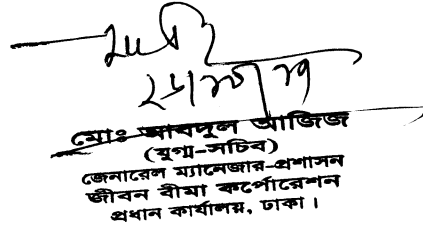 মোঃ আবদুল আজিজ
(যুগ্ম-সচিব)
জেনারেল ম্যানেজার-প্রশাসন
জীবন বীমা কর্পোরেশন
প্রধান কার্যালয়, ঢাকা।